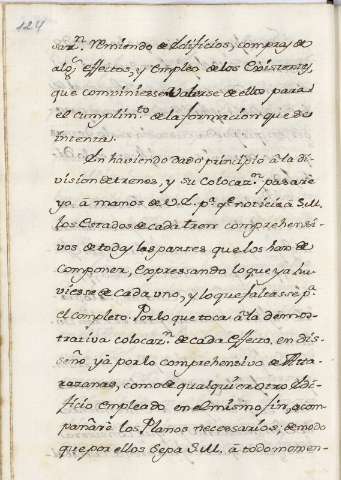 124
saz.ⁿ remiendo de Edificios, compras de
alg.ˢ effectos, y empleo de los Existentes,
que conviniesse Valerse de ellos para
el cumplim.ᵗᵒ de la formacion que se
intenta.
En haviendo dado principio â la di-
vision de trenes, y su colocaz.ⁿ passare
yo, â manos de V.E. p.ᵃ q.ᵉ noticie â S.M.
los Estados de cada tren comprehensi-
vos de todas las partes que los han de
componer, expressando lo que ya hu-
viesse de cada uno, y lo que faltasse p.ᵃ
el completo. Por lo que toca â la demos-
trativa colocaz.ⁿ de cada effecto, en dis-
seño, yâ por lo comprehensivo de Ata-
razanas, como de qualquier otro Edi-
ficio empleado en el mismo fin, acom-
pañarè los Planos necessarios; de modo
que por ellos sepa S.M. â todo momen-